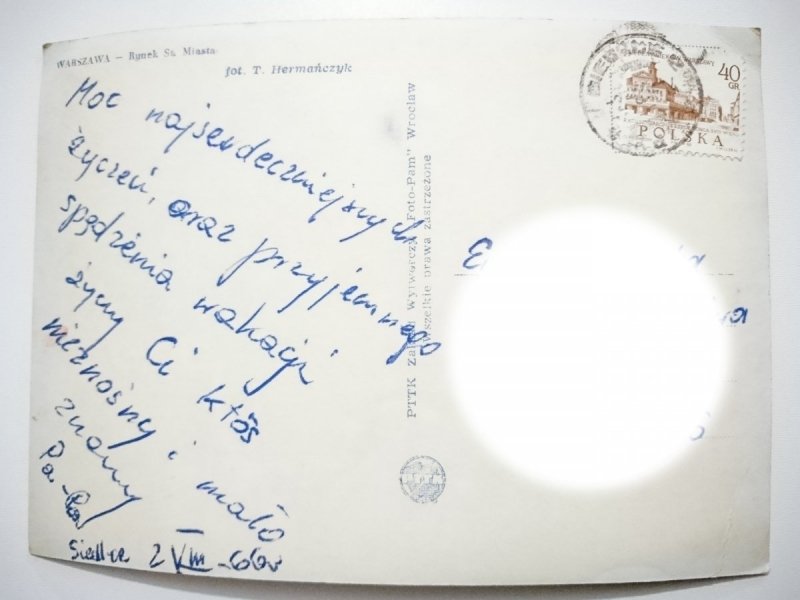 WARSZAWA — Rynek St. Miasta
fot. T. Hermańczyk
Moc najserdeczniejszych
życzeń, oraz przyjemnego
spędzenia wakacji
życzy Ci ktoś
nieznośny i mało
znany
Pa-Pa
Siedlce 2 VIII-66r
PTTK Zakład Wytwórczy „Foto-Pam" Wrocław
Wszelkie prawa zastrzeżone
PTTK
40
GR
POLSKA